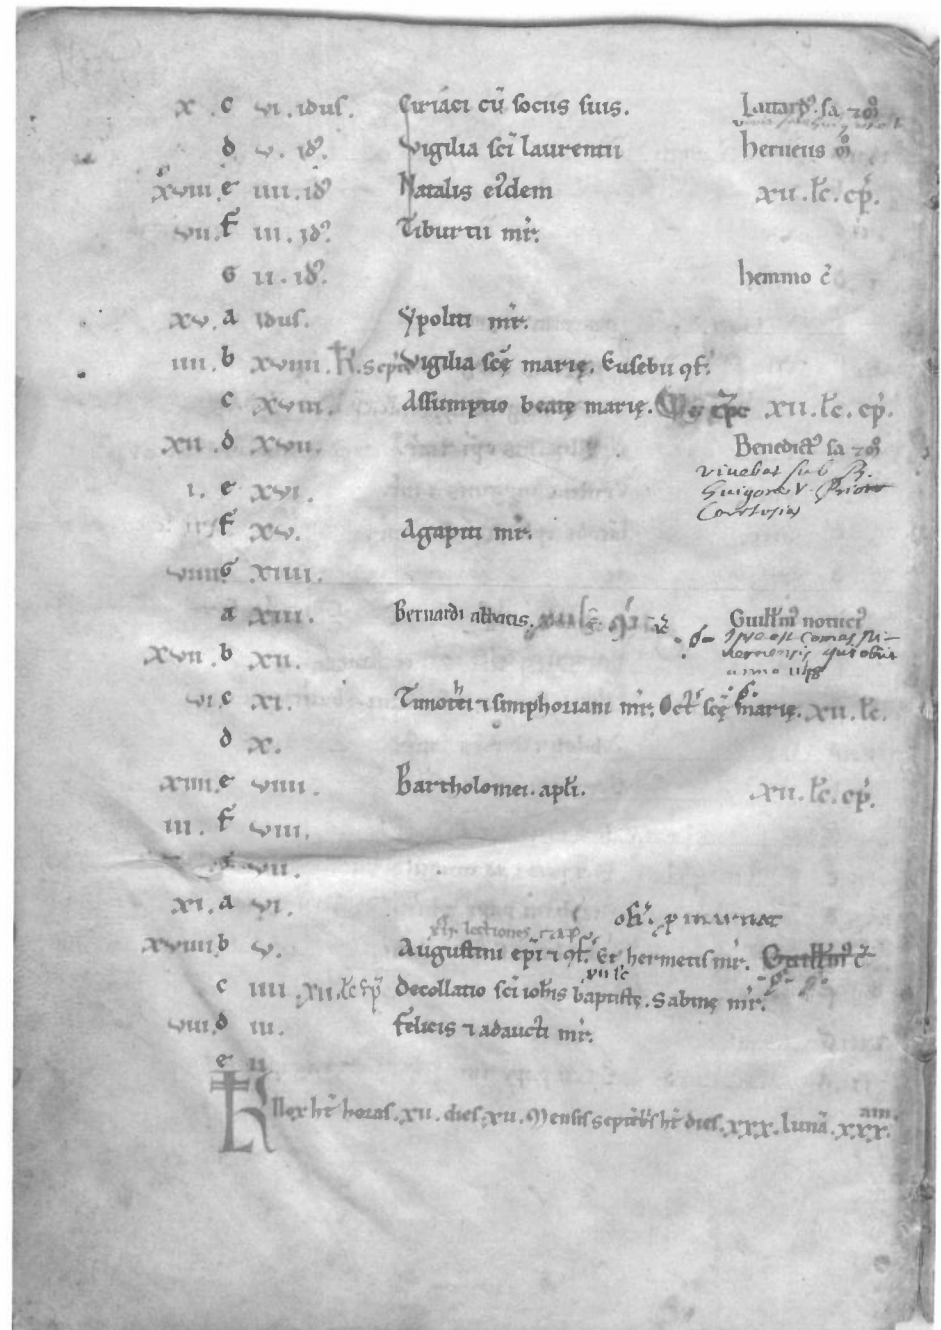 x. c vi. idus. Ciriaci cū sociis suis.
d v. id᾿. Vigilia sc̄i laurentii herueus m̄o
xviii. e iiii. id᾿ Natalis eiꝰdem xii. lc̄. cp̄.
vii. f iii. id᾿. Tiburtii mr̄.
G ii. id᾿. hemmo c̄
xv. a idus. Ypoliti mr̄.
iiii. b xviiii. kl. Septēb Vigilia scē marię. Eusebii ꝯf.
c xviii. Assumptio beatę marię. xii. lc̄. cp̄.
xii. d xvii. Benedictꝰ sa ⁊ m̄o
i. e xvi. vivebat sub B.
Guigone V. Priore
Cartusiæ
f xv. Agapiti mr̄.
viiii G xiiii.
a xiii. Bernardi abbatis. Guillm̄ꝰ nouicꝰ
xvii. b xii. Ipse est comes Ni-
vernensis qui obiit
anno 1148
vi. c xi. Timothei ⁊ simphoriani mr̄. Oct̄ scę marię. xii. lc̄.
d x.
xiiii. e viiii. Bartholomei. apl̄i. xii. lc̄. cp̄.
iii. f viii.
G vii.
xi. a vi.
xii. lectiones
xviiii b v. Augustini ep̄i ⁊ ꝯf. Et hermetis mr̄. Guillm̄ꝰ c̄
xii lc
c iiii xii. lc̄ cp̄ Decollatio sc̄i ioh̄is baptistę. Sabinę mr̄.
viii. d iii. Felicis ⁊ adaucti mr̄.
e ii
Nox ht̄ horas. xii. dies. xii. Mensis septēb̄s ht̄ dies. xxx. lunā. xxx.
am.